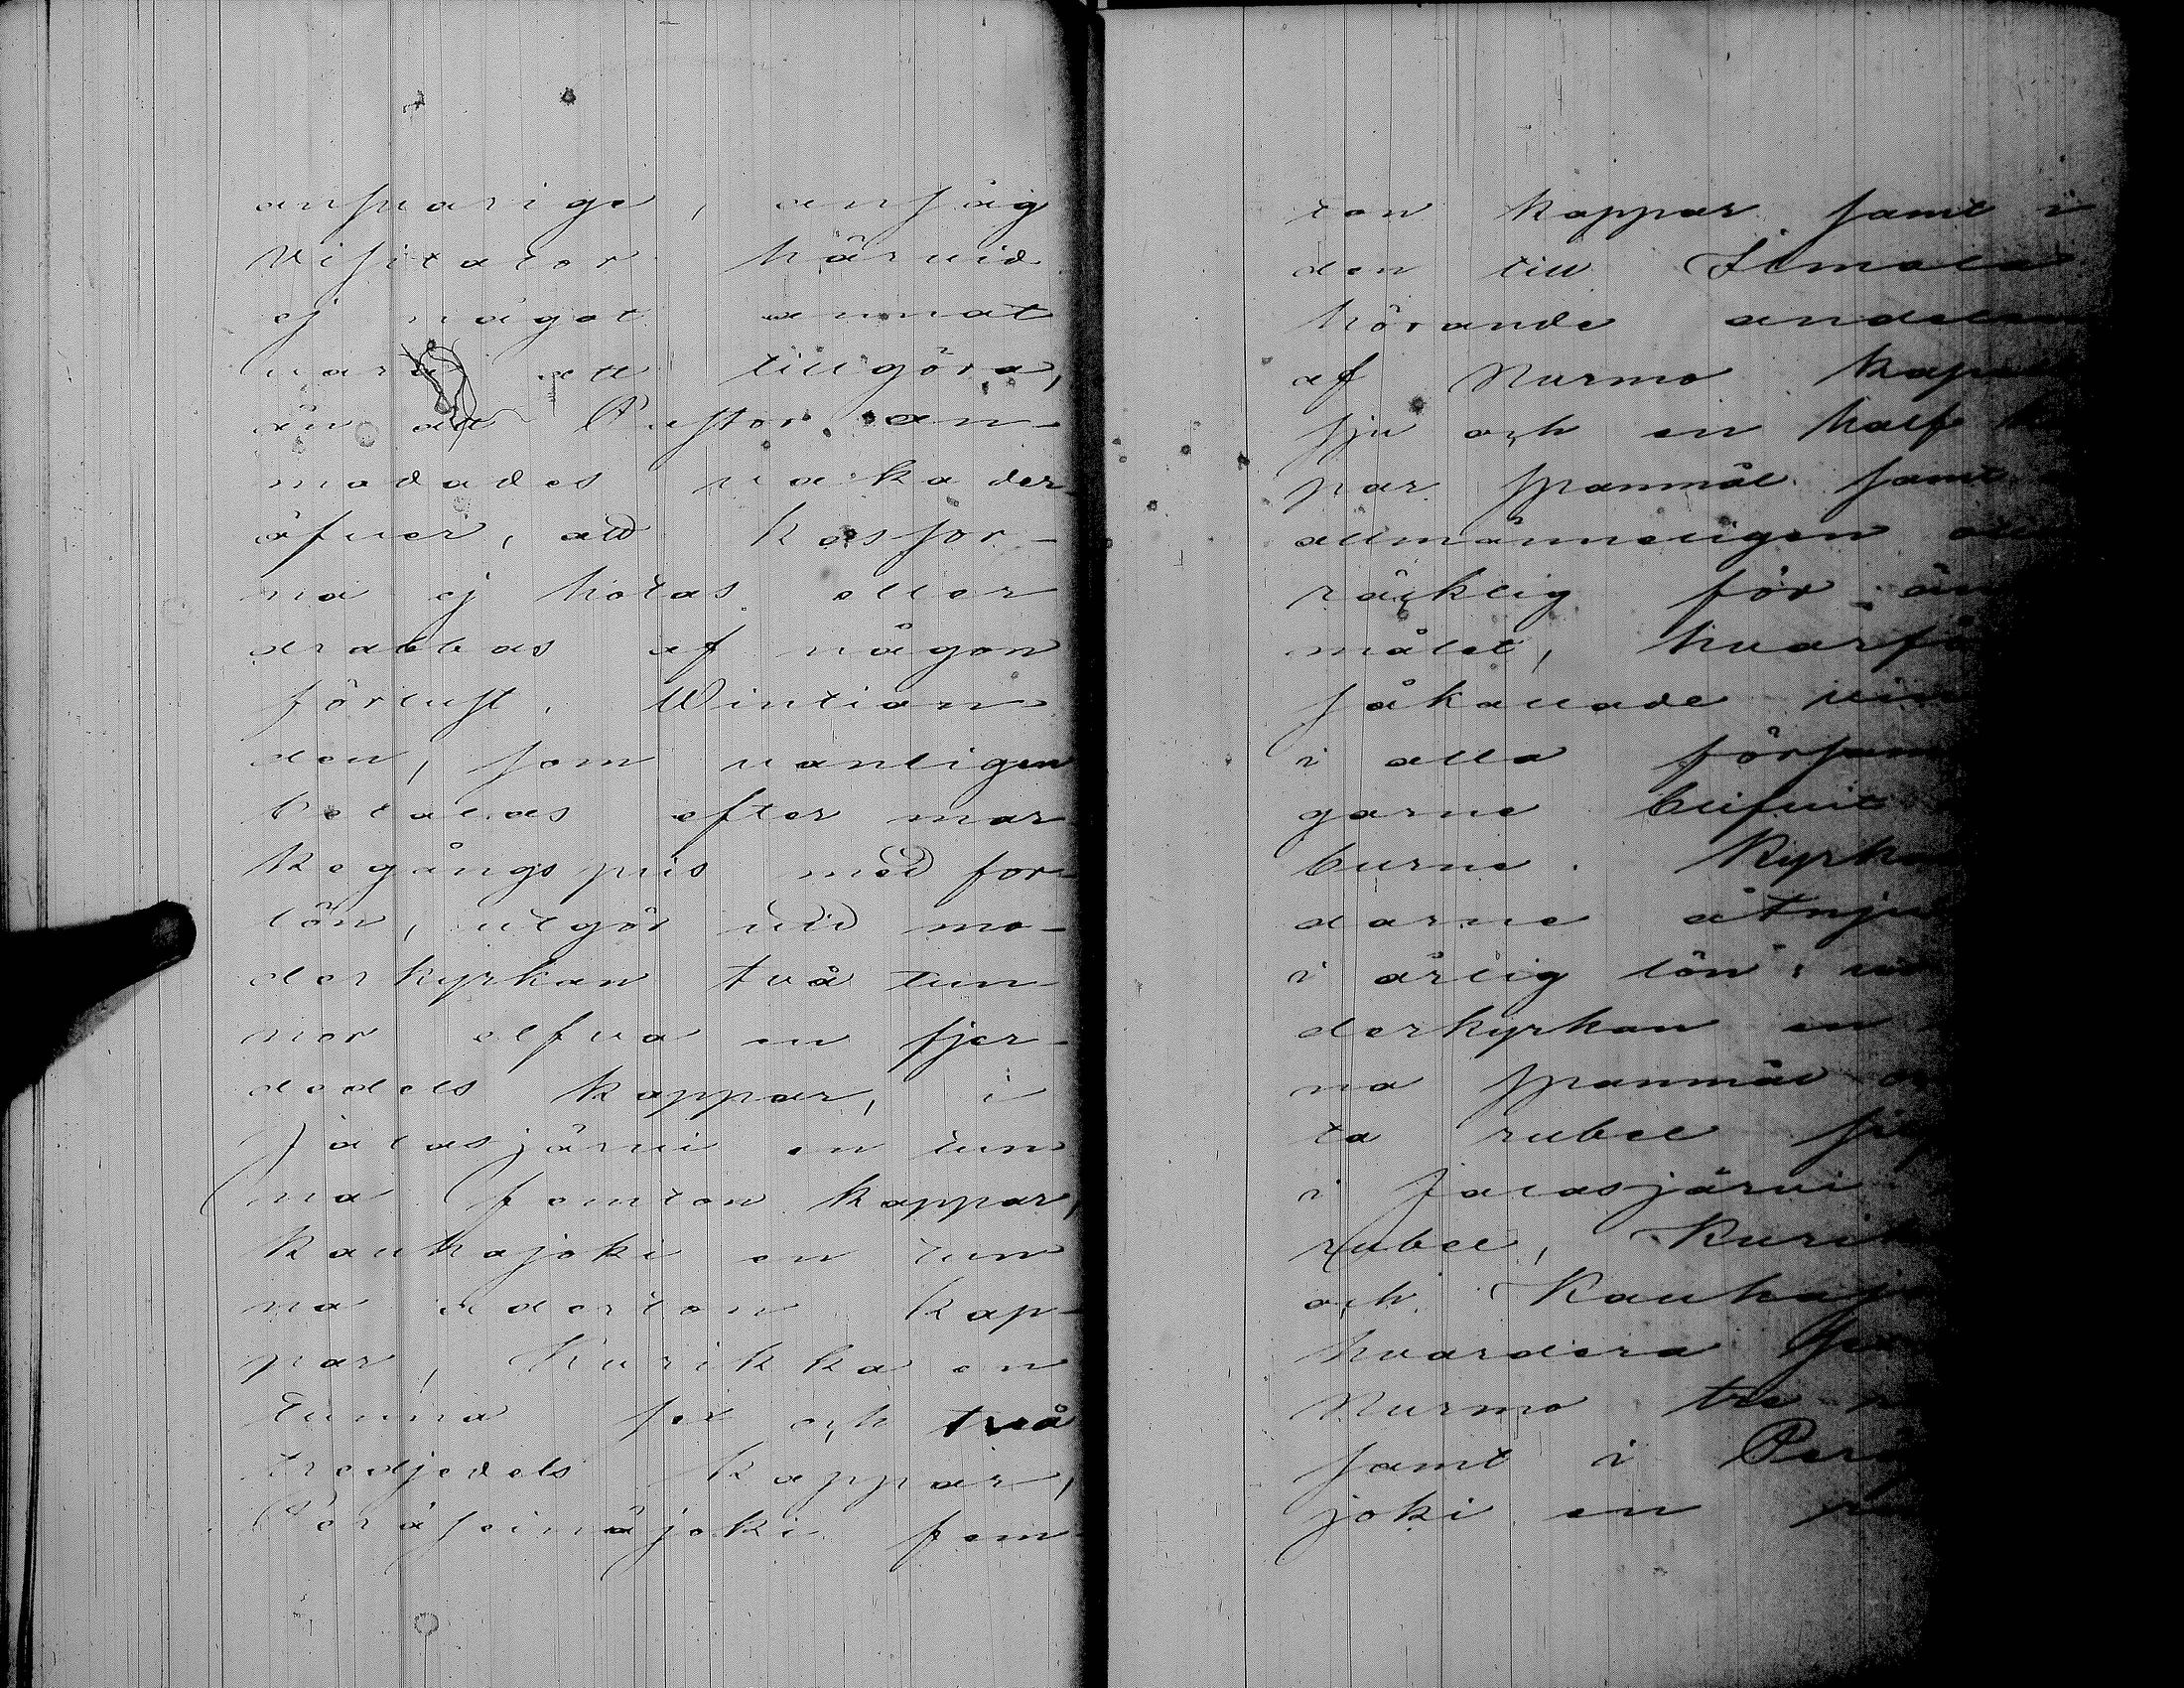 ansvarige, ansåg
Visitator härvid
ej något annat
vara att tillgöra,
än att Pastor an-
modades vaka der-
öfver, att kassor-
na ej hotas eller
drabbas af någon
förlust. Wintion
den, som vanligen
betalas efter mar
kegångspris med for-
lön, utgör vid mo-
derkyrkan två tun-
nor elfva en fjer-
dedels kappar, i
Jalasjärvi en tun
na femton kappar,
Kauhajoki en tun
na aderton kap-
par, Kurikka en
tunna sex och två
tredjedels kappar,
Peräseinäjoki fem
ton kappar samt i
den till Ilmola
hörande andelen
af Nurmo kapell
sju och en half
par spanmål samt
allmänneligen
räcklig för än
målet, hvarför
såkallade vin
i alla försam
garne blifvit
burne. Kyrko
darne åtnju
i årlig lön: vid
derkyrkan en
na spanmål
ta rubel
i Jalasjärvi
rubel, Kurik
och Kauhajo
hvardera
Nurmo tre
samt i Perä
joki en